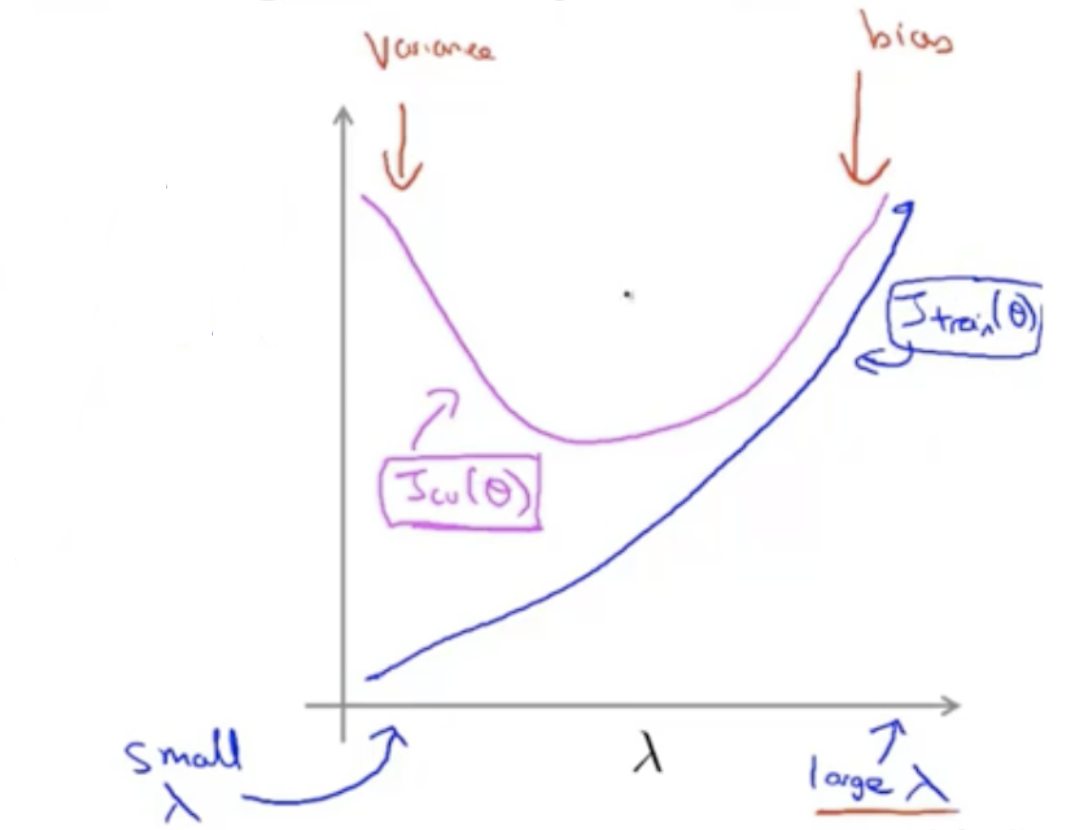 Variance
bias
J train(θ)
J cv(θ)
small
λ
λ
large λ